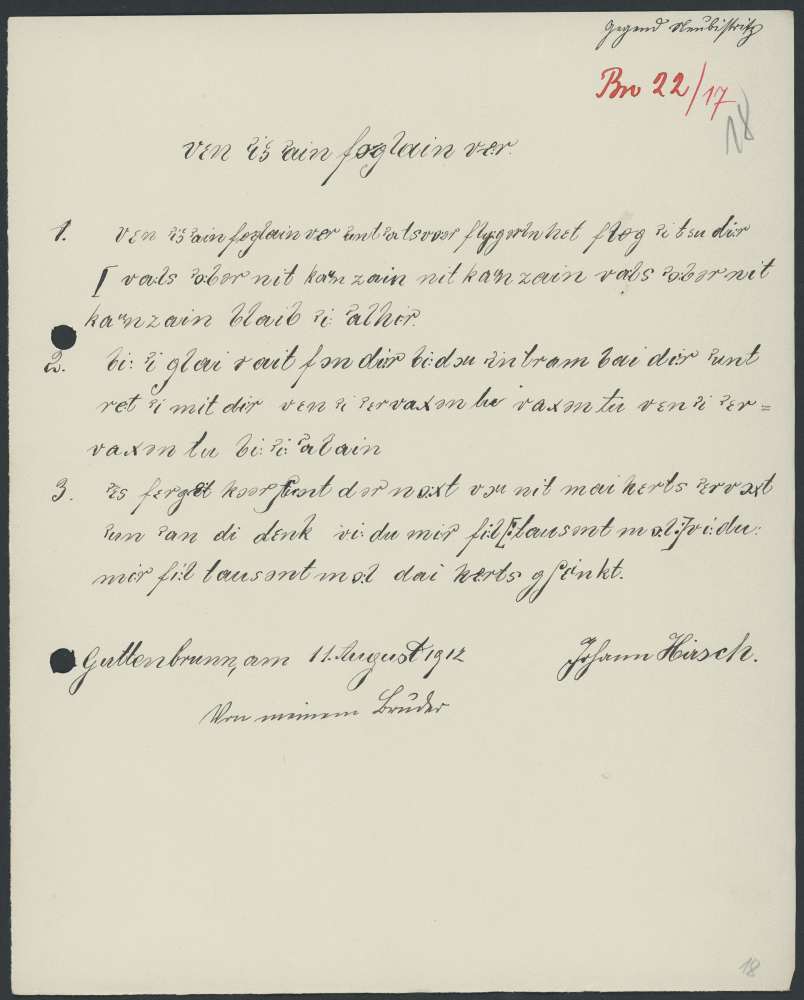 Gegend Neubistritz
Bn 22/17
18
vɛn ʔiʒ ʔain føglain ve:r.
1. vɛn ʔiʒ ʔain føglain ver ʔunt ʔatsvoər flygərln het fløg ʔi tsu di:r
[ va:ls ʔa:bər nit kaʳn zain nit kaʳn zain vals ʔa:bər nit
kaʳn zain blaib ʔi: ʔalhi:r.
2. bi: ʔi glai vait fɔn di:r bi: dɔu ʔin tram bai di:r ʔunt
ret ʔi mit dir vɛn ʔi ʔɛrvaxən tu vaxən tu vɛn ʔi ʔɛr=
vaxən tu bi: ʔi: ʔalain
3. ʔɛs fɛrget kɔər ʃtunt dər nɔxt vɔu nit mai hɛrts ʔɛrvɔxt
ʔun ʔan di dɛnk vi: du mir fi:l [:tausənt mɔ:l:] vi: du:
mir fi:l tausənt mɔ:l dai hɛrts gʃɛnkt.
Guttenbrunn, am 11. August 1912 Johann Hirsch.
Von meinem Bruder
18